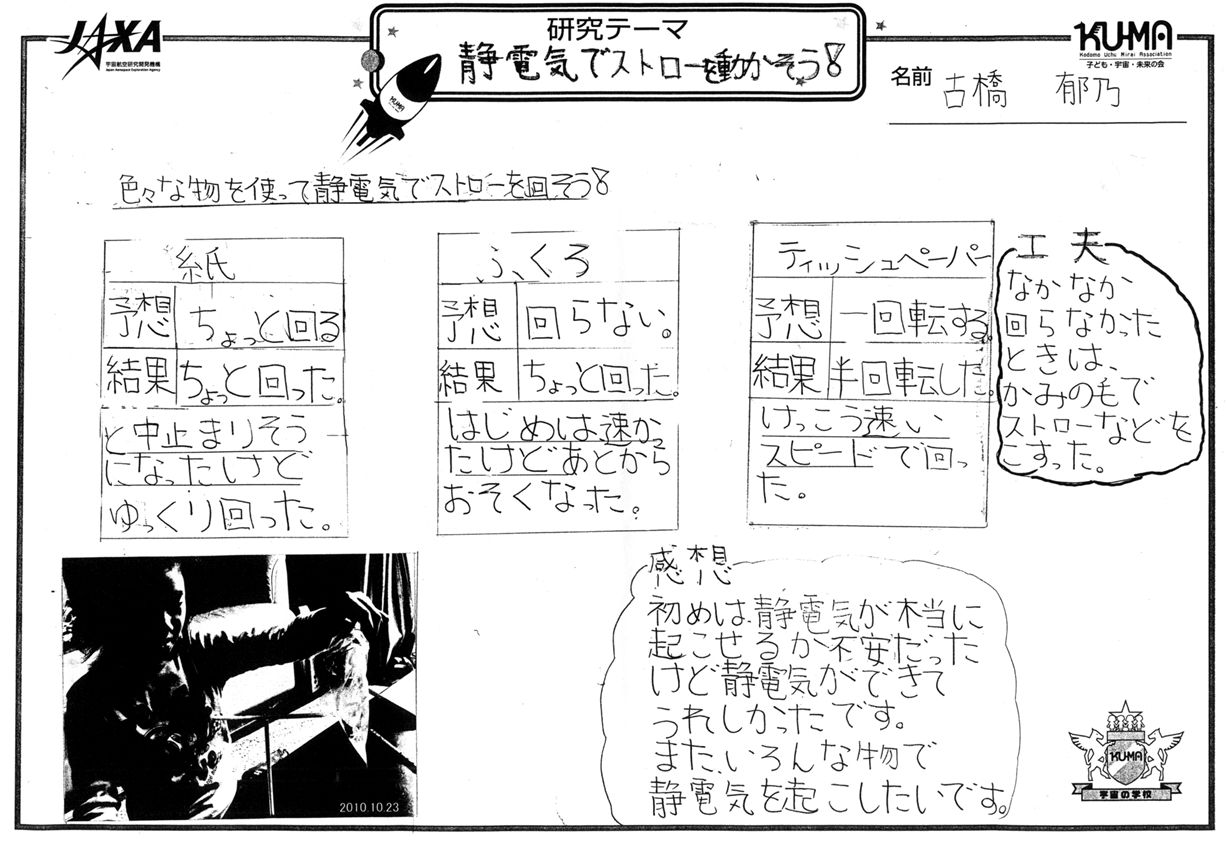 JAXA
宇宙航空研究開発機構
Japan Aerospace Exploration Agency
研究テーマ
静電気でストローを動かそう!
KUMA
KU-MA
Kodomo Uchu Mirai Association
子ども・宇宙・未来の会
名前 古橋 郁乃
色々な物を使って静電気でストローを回そう!
紙
予想 ちょっと回る
結果 ちょっと回った。
と中止まりそう
になったけど
ゆっくり回った。
ふくろ
予想 回らない。
結果 ちょっと回った。
はじめは速かっ
たけどあとから
おそくなった。
ティッシュペーパー
予想 一回転する。
結果 半回転した。
けっこう速い
スピードで回っ
た。
工夫
なかなか
回らなかった
ときは、
かみの毛で
ストローなどを
こすった。
2010.10.23
感想
初めは、静電気が本当に
起こせるか不安だった
けど静電気ができて
うれしかったです。
また、いろんな物で
静電気を起こしたいです。
KUMA
宇宙の学校